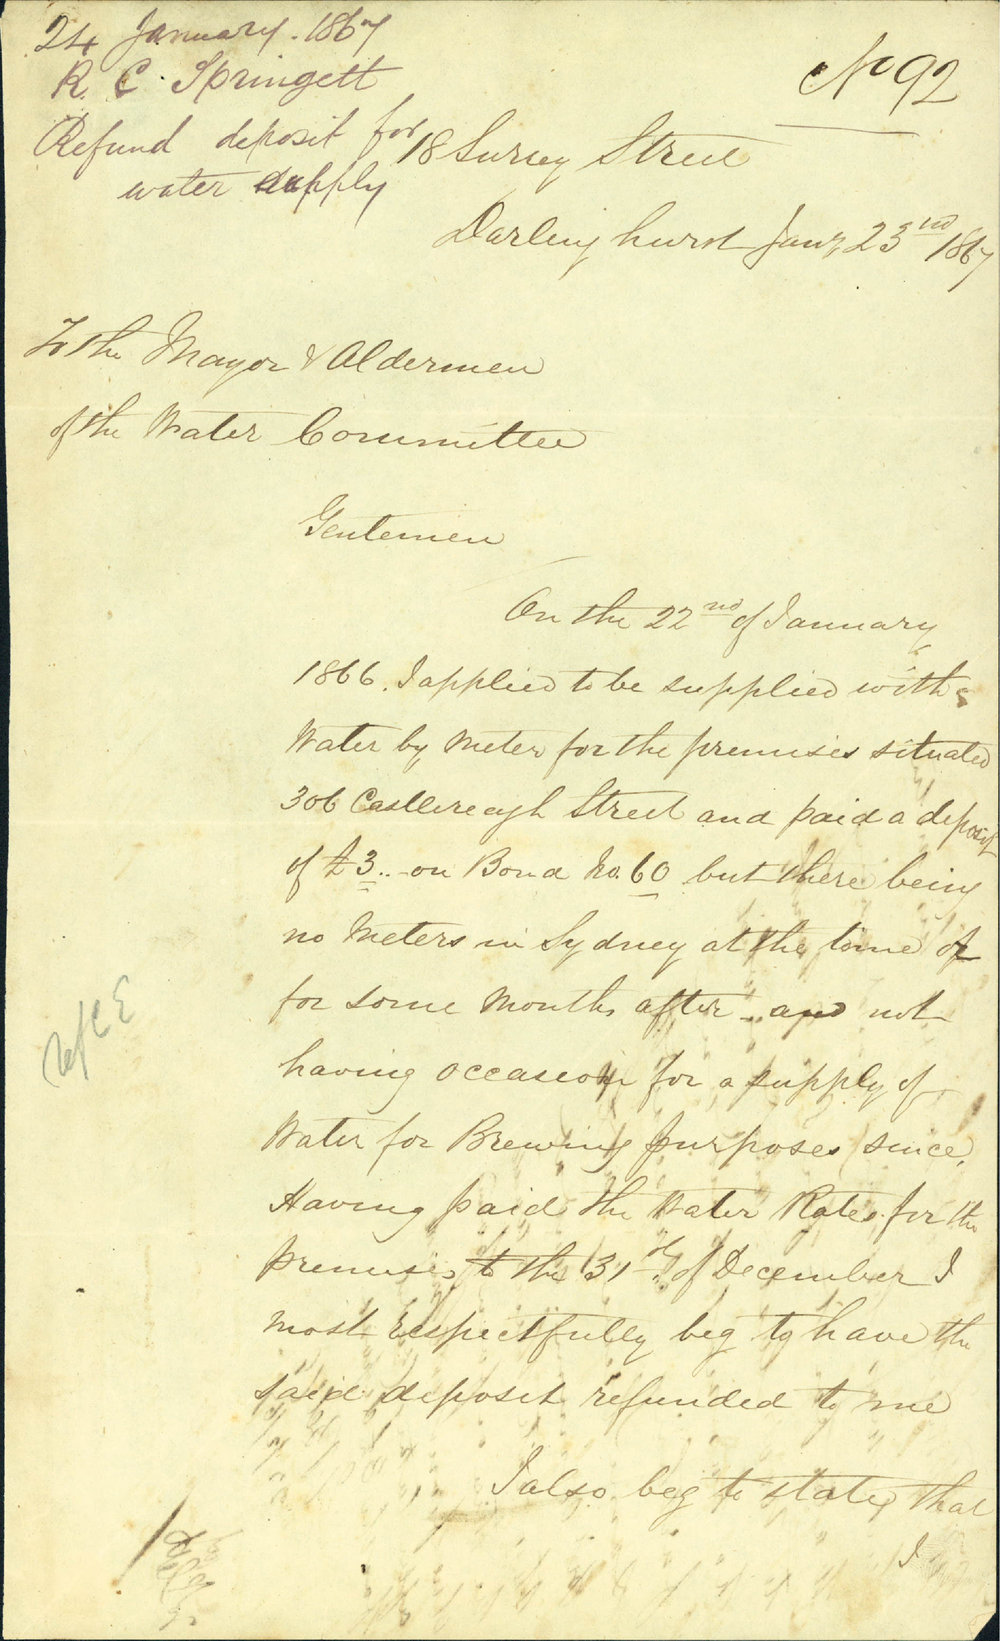 24 January. 1867
R. C. Springett
Refund deposit for
water supply
No 92
18 Surrey Street
Darlinghurst Jany 23nd 1867
To the Mayor & Aldermen
of the Water Committee
Gentemen
On the 22nd of January
1866. I applied to be supplied with
Water by Meter for the premises situated
306 Castlereagh Street and paid a deposit
of £3.. on Bond No. 60 but there being
no Meters in Sydney at the time or
for some Months after - and not
having occasion for a supply of
Water for Brewing purposes since.
Having paid the Water Rates for the
premises to the 31st of December I
most Respectfully beg to have the
said deposit refunded to me
I also beg to state that
I